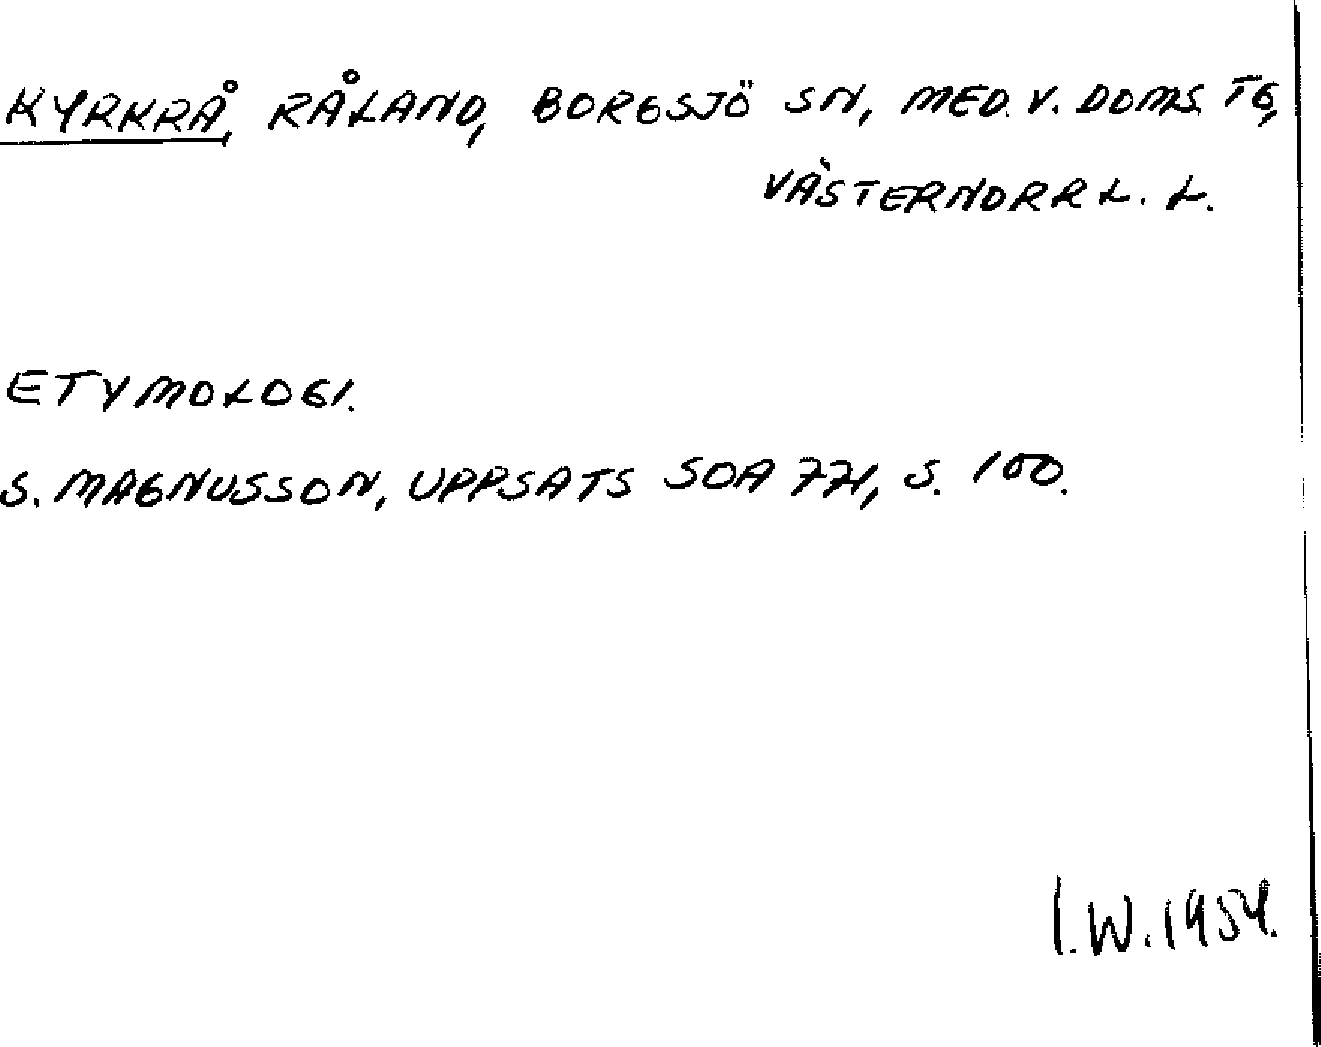 KYRKRÅ, RÅLAND, BORGSJÖ SN, MED. V. DOMS. TG,
VÄSTERNORRL. L.
ETYMOLOGI.
S. MAGNUSSON, UPPSATS SOA 771, S. 100.
I.W. 1954.